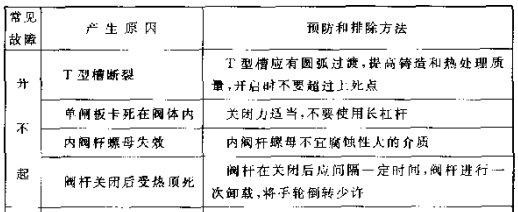 常见故障 产生原因 预防和排除方法
开不起
T型槽断裂 T型槽应有圆弧过渡,提高铸造和热处理质
量,开启时不要超过上死点
单闸板卡死在阀体内 关闭力适当,不要使用长杠杆
内阀杆螺母失效 内阀杆螺母不宜腐蚀性大的介质
阀杆关闭后受热顶死 阀杆在关闭后应间隔一定时间,阀杆进行一
次卸载,将手轮倒转少许